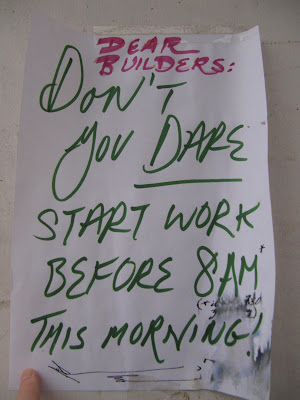 DEAR
BUILDERS:
DON'T
YOU DARE
START WORK
BEFORE 8AM
THIS MORNING!